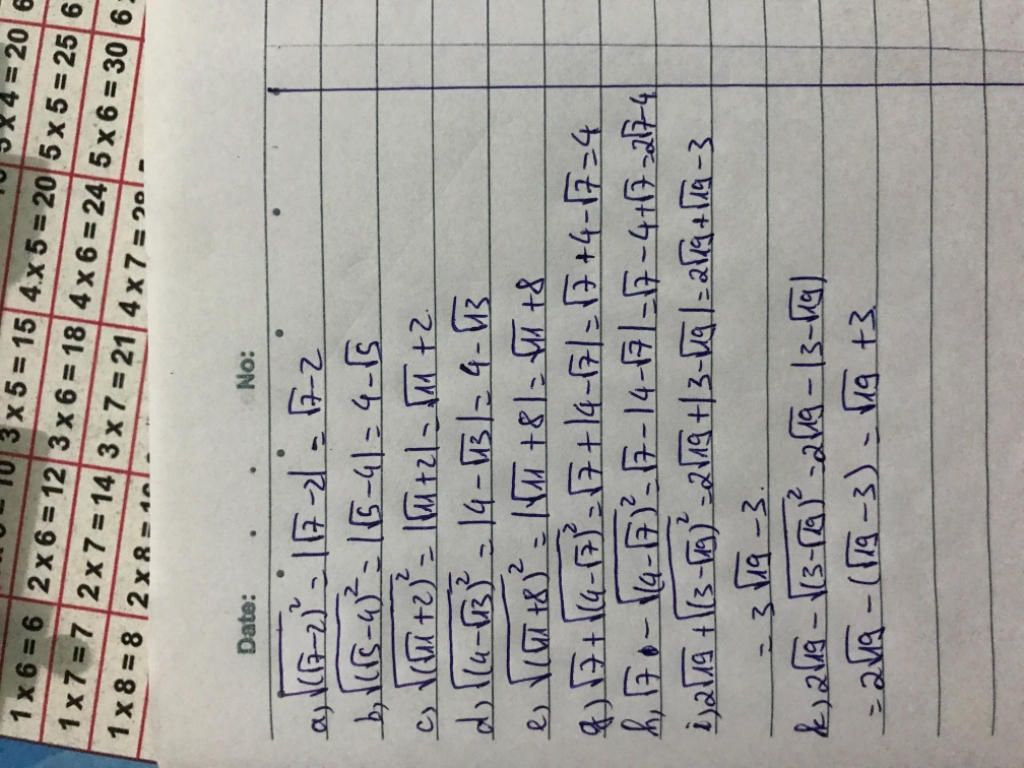 x 4 = 20
3 x 5 = 15 4 x 5 = 20 5 x 5 = 25 6
1 x 6 = 6 2 x 6 = 12 3 x 6 = 18 4 x 6 = 24 5 x 6 = 30 6
1 x 7 = 7 2 x 7 = 14 3 x 7 = 21 4 x 7 =
1 x 8 = 8 2 x 8 =
Date: No:
a, √(√7-2)² = |√7-2| = √7-2
b, √(√5-4)² = |√5-4| = 4-√5
c, √(√11+2)² = |√11+2| = √11+2
d, √(4-√13)² = |4-√13| = 4-√13
e, √(√11+8)² = |√11+8| = √11+8
g, √7+√(4-√7)² = √7+|4-√7| = √7+4-√7 = 4
h, √7-√(4-√7)² = √7-|4-√7| = √7-4+√7 = 2√7-4
i, 2√19+√(3-√19)² = 2√19+|3-√19| = 2√19+√19-3
= 3√19-3.
k, 2√19-√(3-√19)² = 2√19-|3-√19|
= 2√19-(√19-3) = √19+3